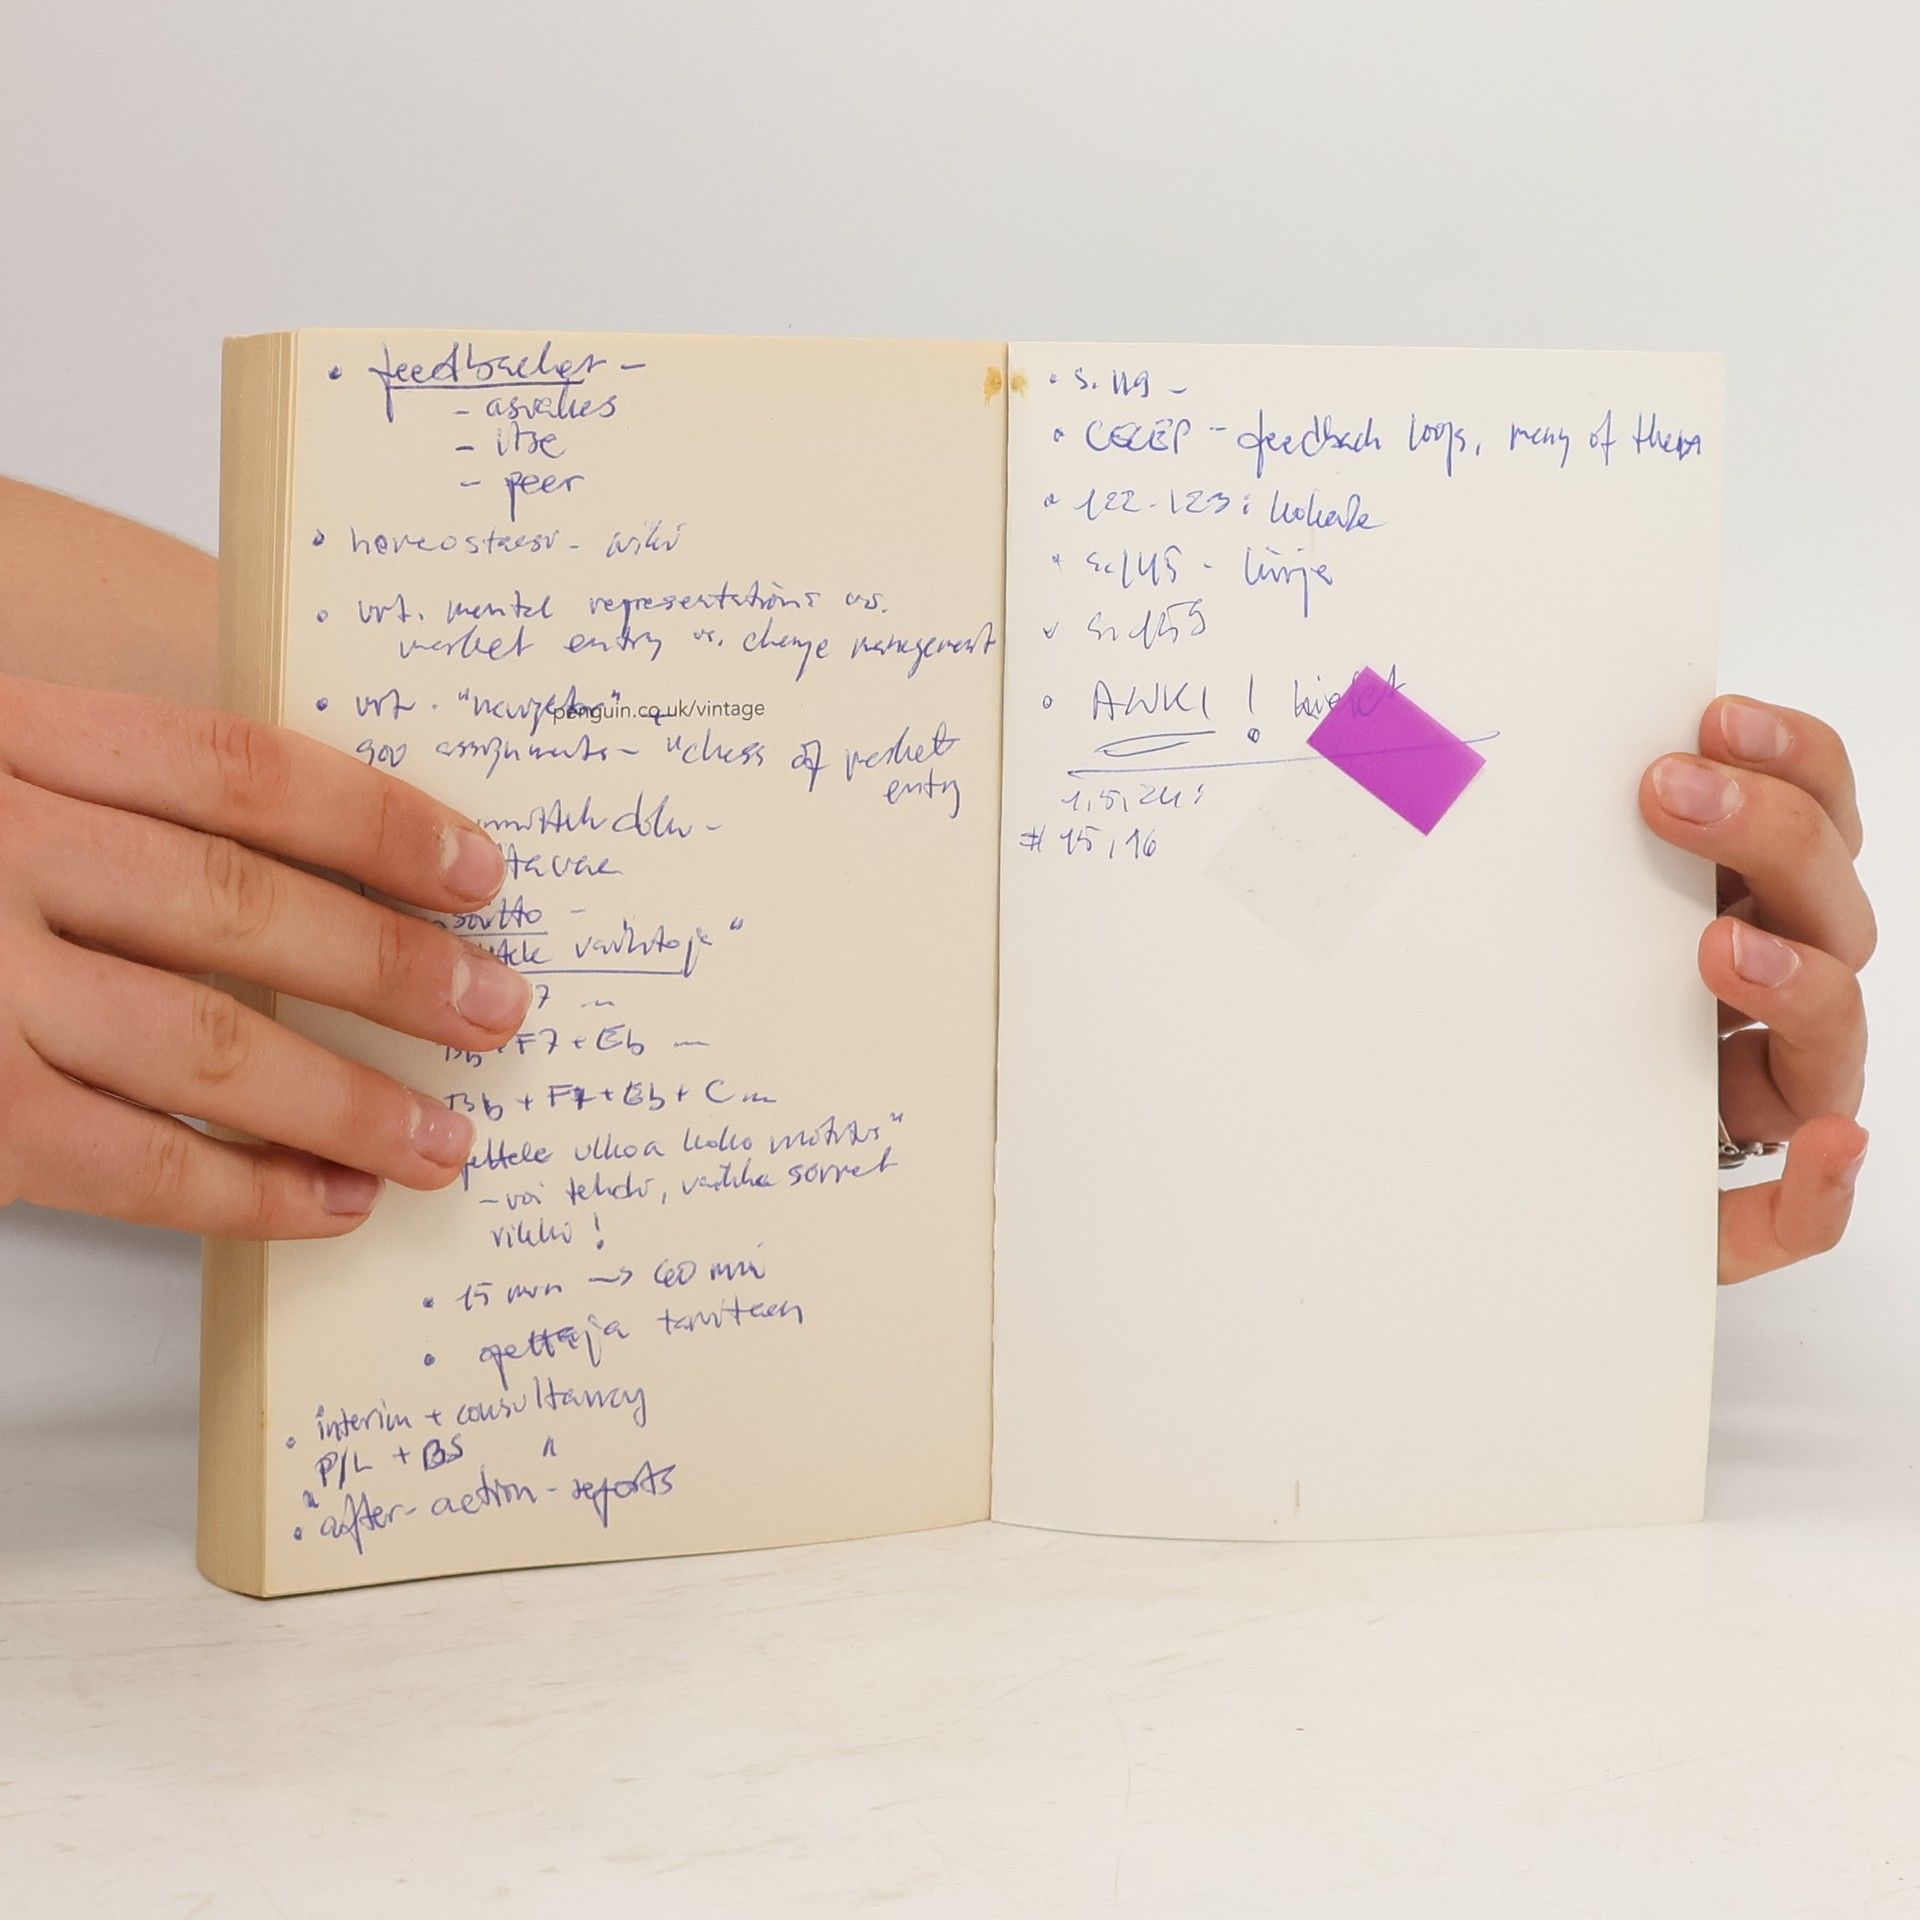 • feedbacket –
– asiakas
– itse
– peer
• homeostaasi – wiki
• vrt. mental representations vs.
market entry vs. change management
• vrt.
penguin.co.uk/vintage
900 assignments – "chess of market
entry
soitto –
vaihtoja"
7
Bb + F7 + Eb –
Bb + F7 + Eb + Cm
ulkoa koko
– voi tehdä, vaikka sormet
rikki!
• 15 min –> 60 min
• opettaja tarvitaan
• interim + consultancy
" P/L + BS "
• after-action-reports
• s. 119 –
• CECEP – feedback loops, many of them
• 122-123: kokeile
• s. 145 – kirja
• s. 159
• AWKI!
1, 5, 24:
# 15, 16